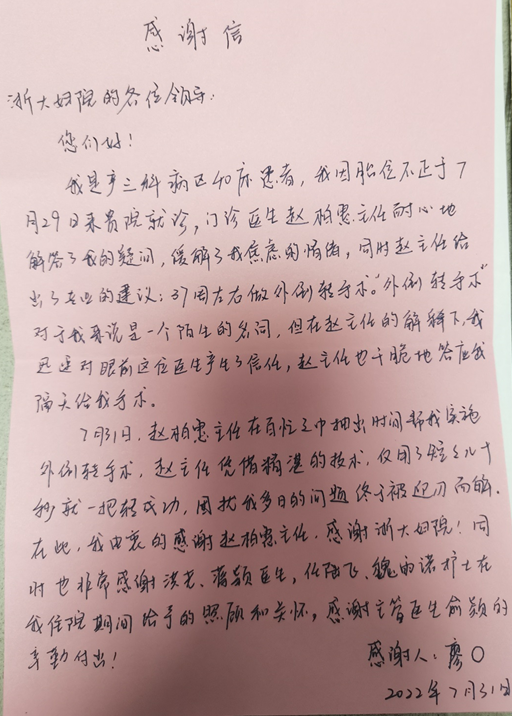 感谢信
浙大妇院的各位领导:
您们好!
我是产三科病区40床患者,我因胎位不正于7
月29日来贵院就诊,门诊医生赵柏惠主任耐心地
解答了我的疑问,缓解了我焦虑的情绪,同时赵主任给
出了专业的建议:37周左右做外倒转手术。“外倒转手术”
对于我来说是一个陌生的名词,但在赵主任的解释下,我
还是对眼前这位医生产生了信任,赵主任也干脆地答应我
隔天给我手术。
7月31日,赵柏惠主任在百忙之中抽出时间帮我实施
外倒转手术,赵主任凭借精湛的技术,仅用了短短几十
秒就一把转成功,困扰我多日的问题终于被迎刃而解。
在此,我由衷的感谢赵柏惠主任,感谢浙大妇院!同
时也非常感谢洪芒、蒋颖医生,任陆飞、魏的诺护士在
我住院期间给予的照顾和关怀,感谢主管医生俞颖的
辛勤付出!
感谢人:廖〇
2022年7月31日